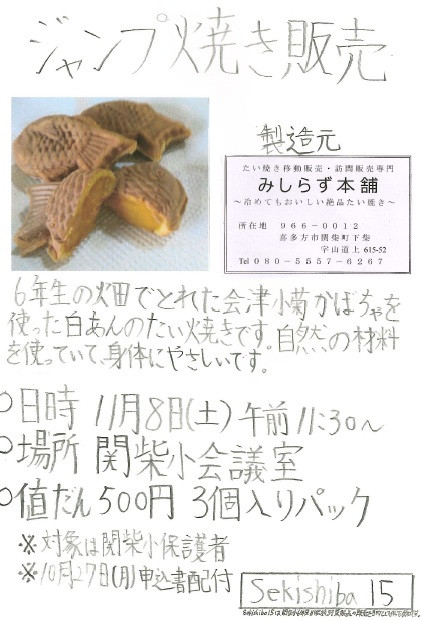 ジャンプ焼き販売
製造元
たい焼き移動販売・訪問販売専門
みしらず本舗
～冷めてもおいしい絶品たい焼き～
所在地 966-0012
喜多方市関柴町下柴
字山道上 615-52
Tel 080-5557-6267
6年生の畑でとれた会津小菊かぼちゃを
使った白あんのたい焼きです。自然の材料
を使っていて、身体にやさしいです。
○日時 11月8日(土) 午前11:30～
○場所 関柴小会議室
○値だん 500円 3個入りパック
※対象は関柴小保護者
※10月27日(月)申込書配付
Sekishiba 15